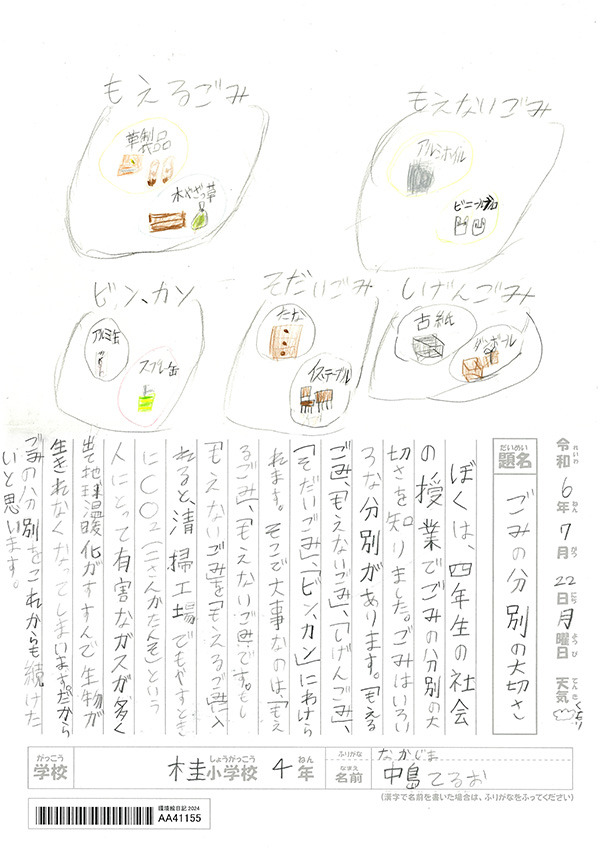 もえるごみ
草制品
木やざっ草
もえないごみ
アルミホイル
ビニールブロ
ビン、カン
アルミ缶
スプレー缶
そだいごみ
たな
イステーブル
しげんごみ
古紙
ダンボール
令和6年7月22日月曜日 天気 くもり
れいわ ねん がつ にち ようび てんき
だいめい
題名
ごみの分別の大切さ
ぼくは、四年生の社会
の授業でごみの分別の大
切さを知りました。ごみはいろい
ろな分別があります。「もえる
ごみ」、「もえないごみ」、「しげんごみ」、
「そだいごみ」、「ビン、カン」にわけら
れます。そこで大事なのは、「もえ
るごみ」、「もえないごみ」です。もし
「もえないごみ」を「もえるごみ」に入
れると、清掃工場でもやすとき
にCO2(二さんかたんそ)という
人にとって有害なガスが多く
出て地球温暖化がすすんで生物が
生きれなくなってしまいます。だから
ごみの分別をこれからも続けた
いと思います。
がっこう
学校
桂小学校 4年
しょうがっこう ねん
ふりがな なかじま
なまえ
名前 中島てるお
(漢字で名前を書いた場合は、ふりがなをふってください)
環境絵日記2024
AA41155